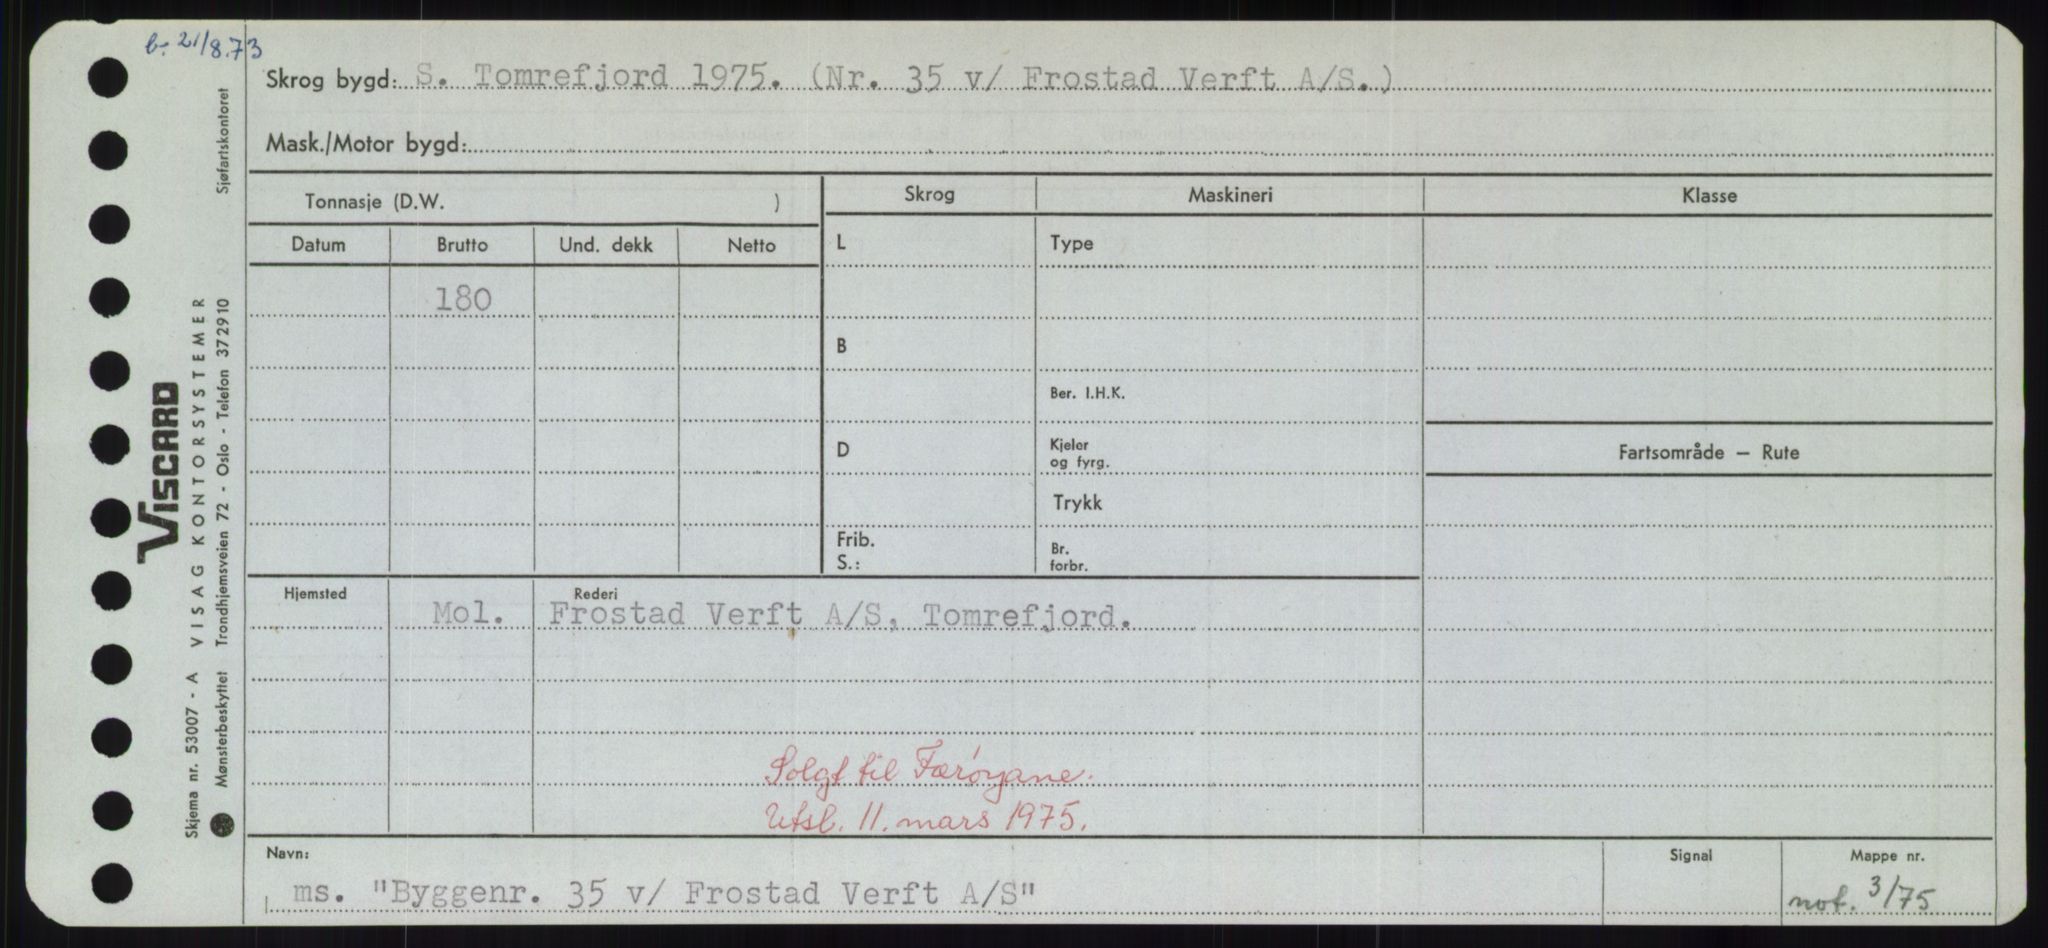 b. 21/8.73
Skrog bygd: S. Tomrefjord 1975. (Nr. 35 v/ Frostad Verft A/S.)
Mask./Motor bygd:
Tonnasje (D.W. )
Skrog Maskineri Klasse
Datum Brutto Und. dekk Netto
L Type
180
B
Ber. I.H.K.
D Kjeler og fyrg.
Fartsområde — Rute
Trykk
Frib.
S.: Br. forbr.
Hjemsted Rederi
Mol. Frostad Verft A/S, Tomrefjord.
Solgt til Færøyane.
Utsl. 11. mars 1975.
Navn: Signal Mappe nr.
ms. "Byggenr. 35 v/ Frostad Verft A/S" not. 3/75
VISCARD
Skjema nr. 53007 - A VISAG KONTORSYSTEMER
Mønsterbeskyttet Trondhjemsveien 72 - Oslo - Telefon 372910 Sjøfartskontoret